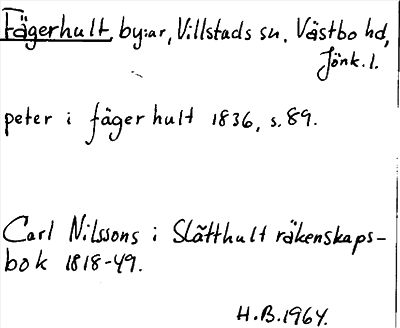 Fägerhult, by:ar, Villstads sn. Västbo hd,
Jönk.l.
peter i fäger hult 1836, s.89.
Carl Nilssons i Slätthult räkenskaps-
bok 1818-49.
H.B.1964.